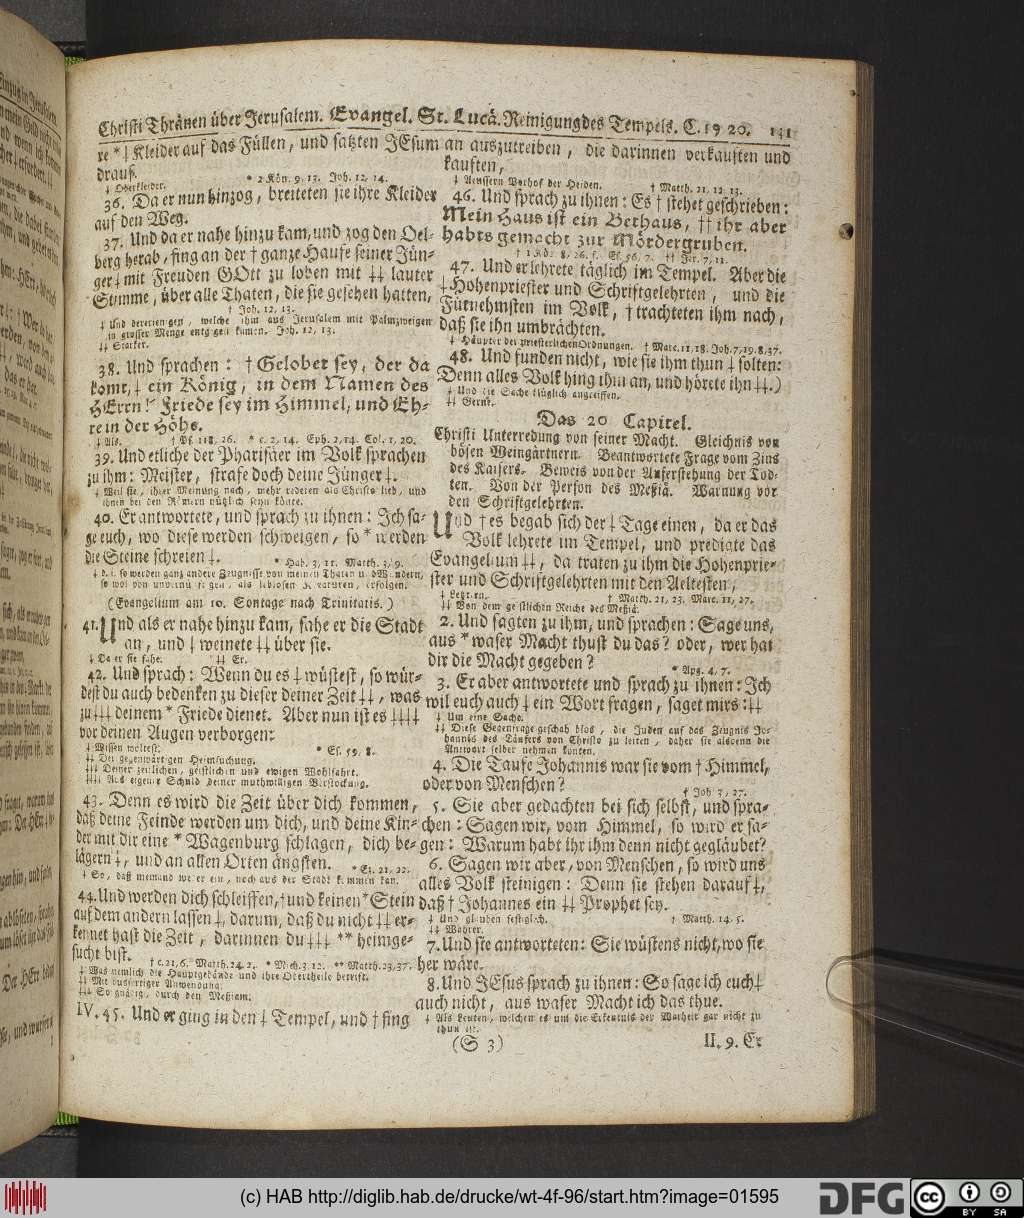 Christi Thränen über Jerusalem. Evangel. St. Lucä. Reinigung des Tempels. C. 19 20. 141
re *⸸ Kleider auf das Füllen, und satzten JEsum
drauf.
⸸ Oberkleider. * 2 Kön. 9, 13. Joh. 12, 14.
36. Da er nun hinzog, breiteten sie ihre Kleider
auf den Weg.
37. Und da er nahe hinzu kam, und zog den Oel-
berg herab, fing an der † ganze Haufe seiner Jün-
ger ⸸ mit Freuden GOtt zu loben mit ⸸⸸ lauter
Stimme, über alle Thaten, die sie gesehen hatten,
† Joh. 12, 13.
⸸ Und derenjenigen, welche ihm aus Jerusalem mit Palmzweigen
in grosser Menge entgegen kamen. Joh. 12, 13.
⸸⸸ Starker.
38. Und sprachen: † Gelobet sey, der da
komt, ⸸ ein König, in dem Namen des
HErrn! Friede sey im Himmel, und Eh-
re in der Höhe.
⸸ Als. † Ps. 118, 26. * c. 2, 14. Eph. 2, 14. Col. 1, 20.
39. Und etliche der Pharisäer im Volk sprachen
zu ihm: Meister, strafe doch deine Jünger ⸸.
⸸ Weil sie, ihrer Meinung nach, mehr redeten als Christo lieb, und
ihnen bei den Römern nützlich seyn könte.
40. Er antwortete, und sprach zu ihnen: Ich sa-
ge euch, wo diese werden schweigen, so * werden
die Steine schreien ⸸.
* Hab. 3, 11. Matth. 3, 9.
⸸ d. i. so werden ganz andere Zeugnisse von meinen Thaten u. Wundern,
so wol von unvernünftigen, als leblosen Kreaturen, erfolgen.
(Evangelium am 10. Sontage nach Trinitatis.)
41. Und als er nahe hinzu kam, sahe er die Stadt
an, und ⸸ weinete ⸸⸸ über sie.
⸸ Da er sie sahe. ⸸⸸ Er.
42. Und sprach: Wenn du es ⸸ wüstest, so wür-
dest du auch bedenken zu dieser deiner Zeit ⸸⸸, was
zu ⸸⸸⸸ deinem * Friede dienet. Aber nun ist es ⸸⸸⸸⸸
vor deinen Augen verborgen:
⸸ Wissen woltest. * Es. 59, 8.
⸸⸸ Der gegenwärtigen Heimsuchung.
⸸⸸⸸ Deiner zeitlichen, geistlichen und ewigen Wohlfahrt.
⸸⸸⸸⸸ Aus eigener Schuld deiner muthwilligen Verstockung.
43. Denn es wird die Zeit über dich kommen,
daß deine Feinde werden um dich, und deine Kin-
der mit dir eine * Wagenburg schlagen, dich be-
lägern ⸸, und an allen Orten ängsten.
* Ez. 21, 22.
⸸ So, daß niemand weder ein, noch aus der Stadt kommen kan.
44. Und werden dich schleiffen, † und keinen * Stein
auf dem andern lassen ⸸, darum, daß du nicht ⸸⸸ er-
kennet hast die Zeit, darinnen du ⸸⸸⸸ ** heimge-
sucht bist. † c. 21, 6. Matth. 24, 2. * Mich. 3, 12. ** Matth. 23, 37.
⸸ Was nemlich die Hauptgebäude und ihre Obertheile betrift.
⸸⸸ Mit busfertiger Anwendung.
⸸⸸⸸ So gnädig, durch den Meßiam.
IV. 45. Und er ging in den ⸸ Tempel, und † fing
an auszutreiben, die darinnen verkauften und
kauften,
⸸ Aeussern Vorhof der Heiden. † Matth. 21, 12. 13.
46. Und sprach zu ihnen: Es † stehet geschrieben:
Mein Haus ist ein Bethaus, †† ihr aber
habts gemacht zur Mördergruben.
† 1 Kön. 8, 26. s. Es. 56, 7. †† Jer. 7, 11.
47. Und er lehrete täglich im Tempel. Aber die
⸸ Hohenpriester und Schriftgelehrten, und die
Fürnehmsten im Volk, † trachteten ihm nach,
daß sie ihn umbrächten.
⸸ Häupter der priesterlichen Ordnungen. † Marc. 11, 18. Joh. 7, 19. 8, 37.
48. Und funden nicht, wie sie ihm thun ⸸ solten:
Denn alles Volk hing ihm an, und hörete ihn ⸸⸸.)
⸸ Und die Sache klüglich angreiffen.
⸸⸸ Gerne.
Das 20 Capitel.
Christi Unterredung von seiner Macht. Gleichnis von
bösen Weingärtnern. Beantwortete Frage vom Zins
des Kaisers. Beweis von der Auferstehung der Tod-
ten. Von der Person des Meßiä. Warnung vor
den Schriftgelehrten.
Und † es begab sich der ⸸ Tage einen, da er das
Volk lehrete im Tempel, und predigte das
Evangelium ⸸⸸, da traten zu ihm die Hohenprie-
ster und Schriftgelehrten mit den Aeltesten,
⸸ Letzten. † Matth. 21, 23. Marc. 11, 27.
⸸⸸ Von dem geistlichen Reiche des Meßiä.
2. Und sagten zu ihm, und sprachen: Sage uns,
aus * waser Macht thust du das? oder, wer hat
dir die Macht gegeben?
* Apg. 4, 7.
3. Er aber antwortete und sprach zu ihnen: Ich
wil euch auch ⸸ ein Wort fragen, saget mirs: ⸸⸸
⸸ Um eine Sache.
⸸⸸ Diese Gegenfrage geschah blos, die Juden auf das Zeugnis Jo-
hannis des Täufers von Christo zu leiten, daher sie alsdenn die
Antwort selber nehmen konten.
4. Die Taufe Johannis war sie vom † Himmel,
oder von Menschen?
† Joh. 3, 27.
5. Sie aber gedachten bei sich selbst, und spra-
chen: Sagen wir, vom Himmel, so wird er sa-
gen: Warum habt ihr ihm denn nicht gegläubet?
6. Sagen wir aber, von Menschen, so wird uns
alles Volk steinigen: Denn sie stehen darauf ⸸,
daß † Johannes ein ⸸⸸ Prophet sey.
⸸ Und glauben festiglich. † Matth. 14, 5.
⸸⸸ Wahrer.
7. Und sie antworteten: Sie wüstens nicht, wo sie
her wäre.
8. Und JEsus sprach zu ihnen: So sage ich euch ⸸
auch nicht, aus waser Macht ich das thue.
⸸ Als Leuten, welchen es um die Erkentnis der Warheit gar nicht zu
thun ist.
(S 3)
II. 9. Er
(c) HAB http://diglib.hab.de/drucke/wt-4f-96/start.htm?image=01595
DFG
cc BY SA